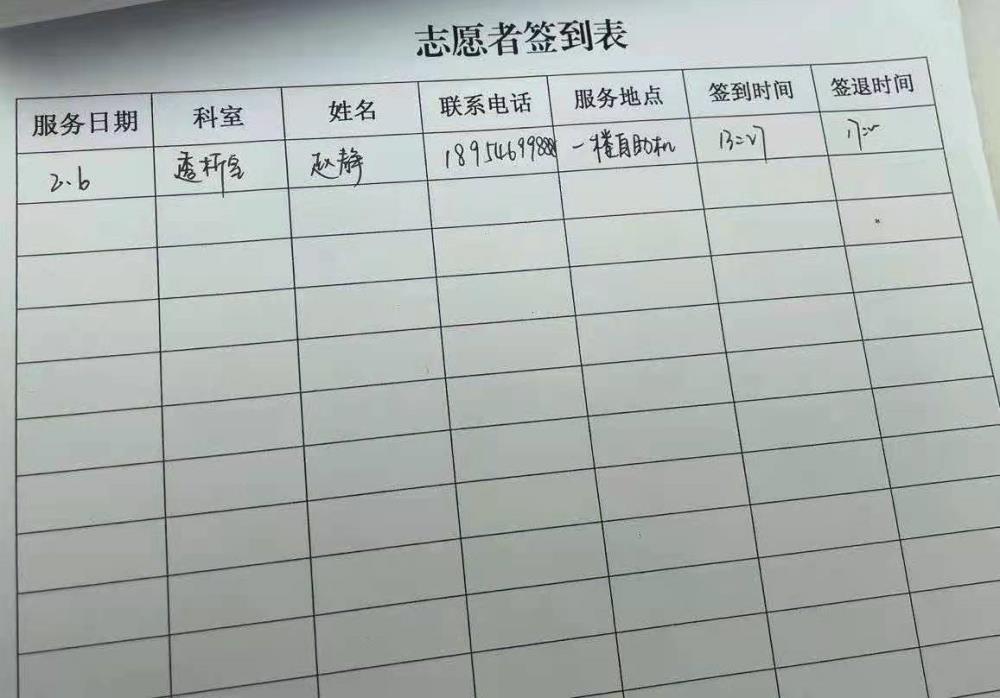 志愿者签到表
服务日期 科室 姓名 联系电话 服务地点 签到时间 签退时间
2.6 透析室 赵静 18954699888 一楼自助机